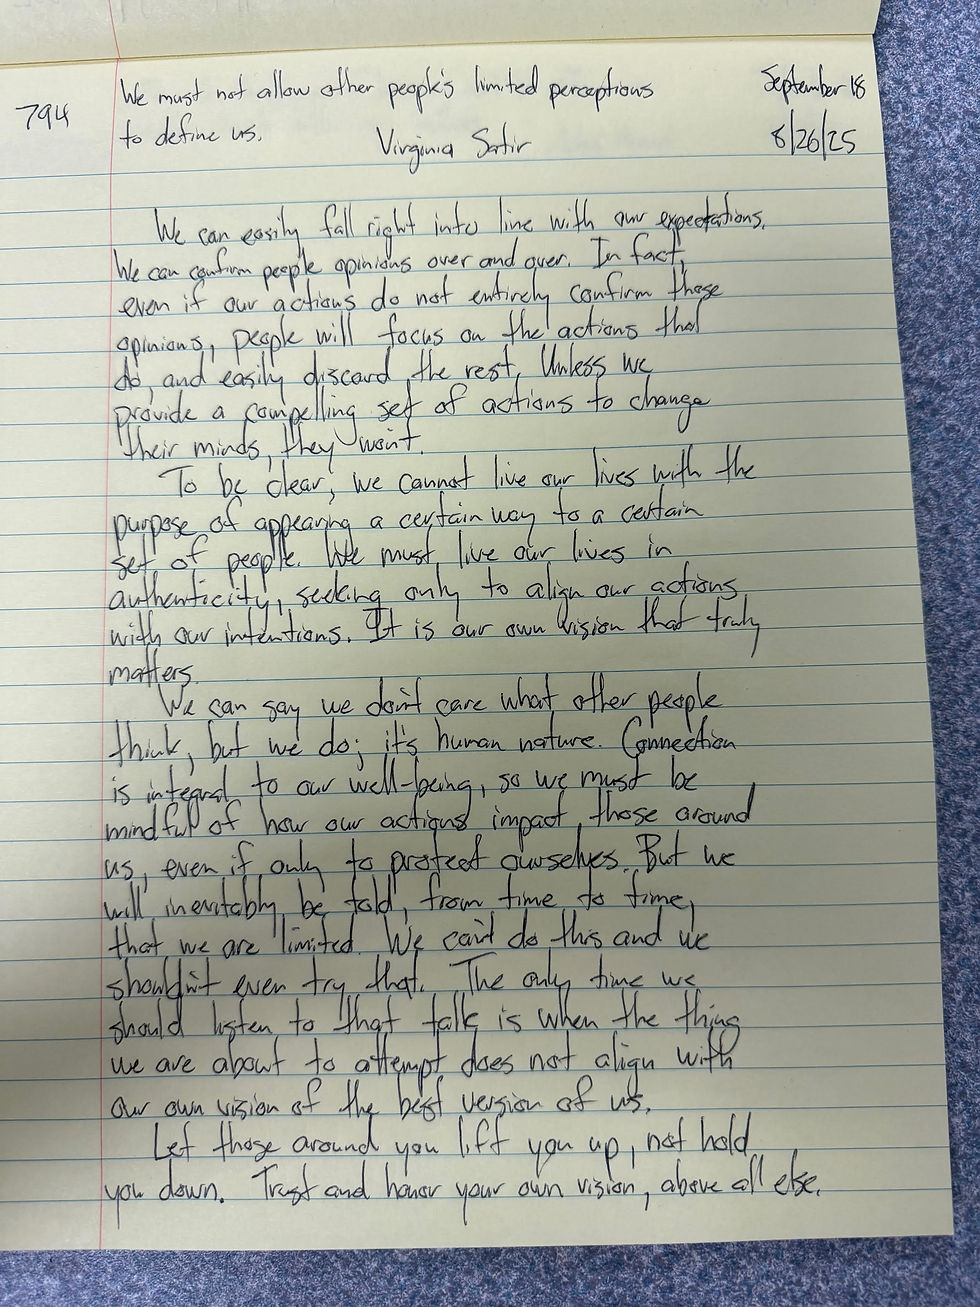 794
We must not allow other people's limited perceptions
to define us.
Virginia Satir
September 18
8/26/25
We can easily fall right into line with our expectations.
We can confirm people opinions over and over. In fact,
even if our actions do not entirely confirm those
opinions, people will focus on the actions that
do, and easily discard the rest. Unless we
provide a compelling set of actions to change
their minds, they won't.
To be clear, we cannot live our lives with the
purpose of appearing a certain way to a certain
set of people. We must live our lives in
authenticity, seeking only to align our actions
with our intentions. It is our own vision that truly
matters.
We can say we don't care what other people
think, but we do; it's human nature. Connection
is integral to our well-being, so we must be
mindful of how our actions impact those around
us, even if only to protect ourselves. But we
will inevitably be told, from time to time,
that we are limited. We can't do this and we
shouldn't even try that. The only time we
should listen to that talk is when the thing
we are about to attempt does not align with
our own vision of the best version of us.
Let those around you lift you up, not hold
you down. Trust and honor your own vision, above all else.